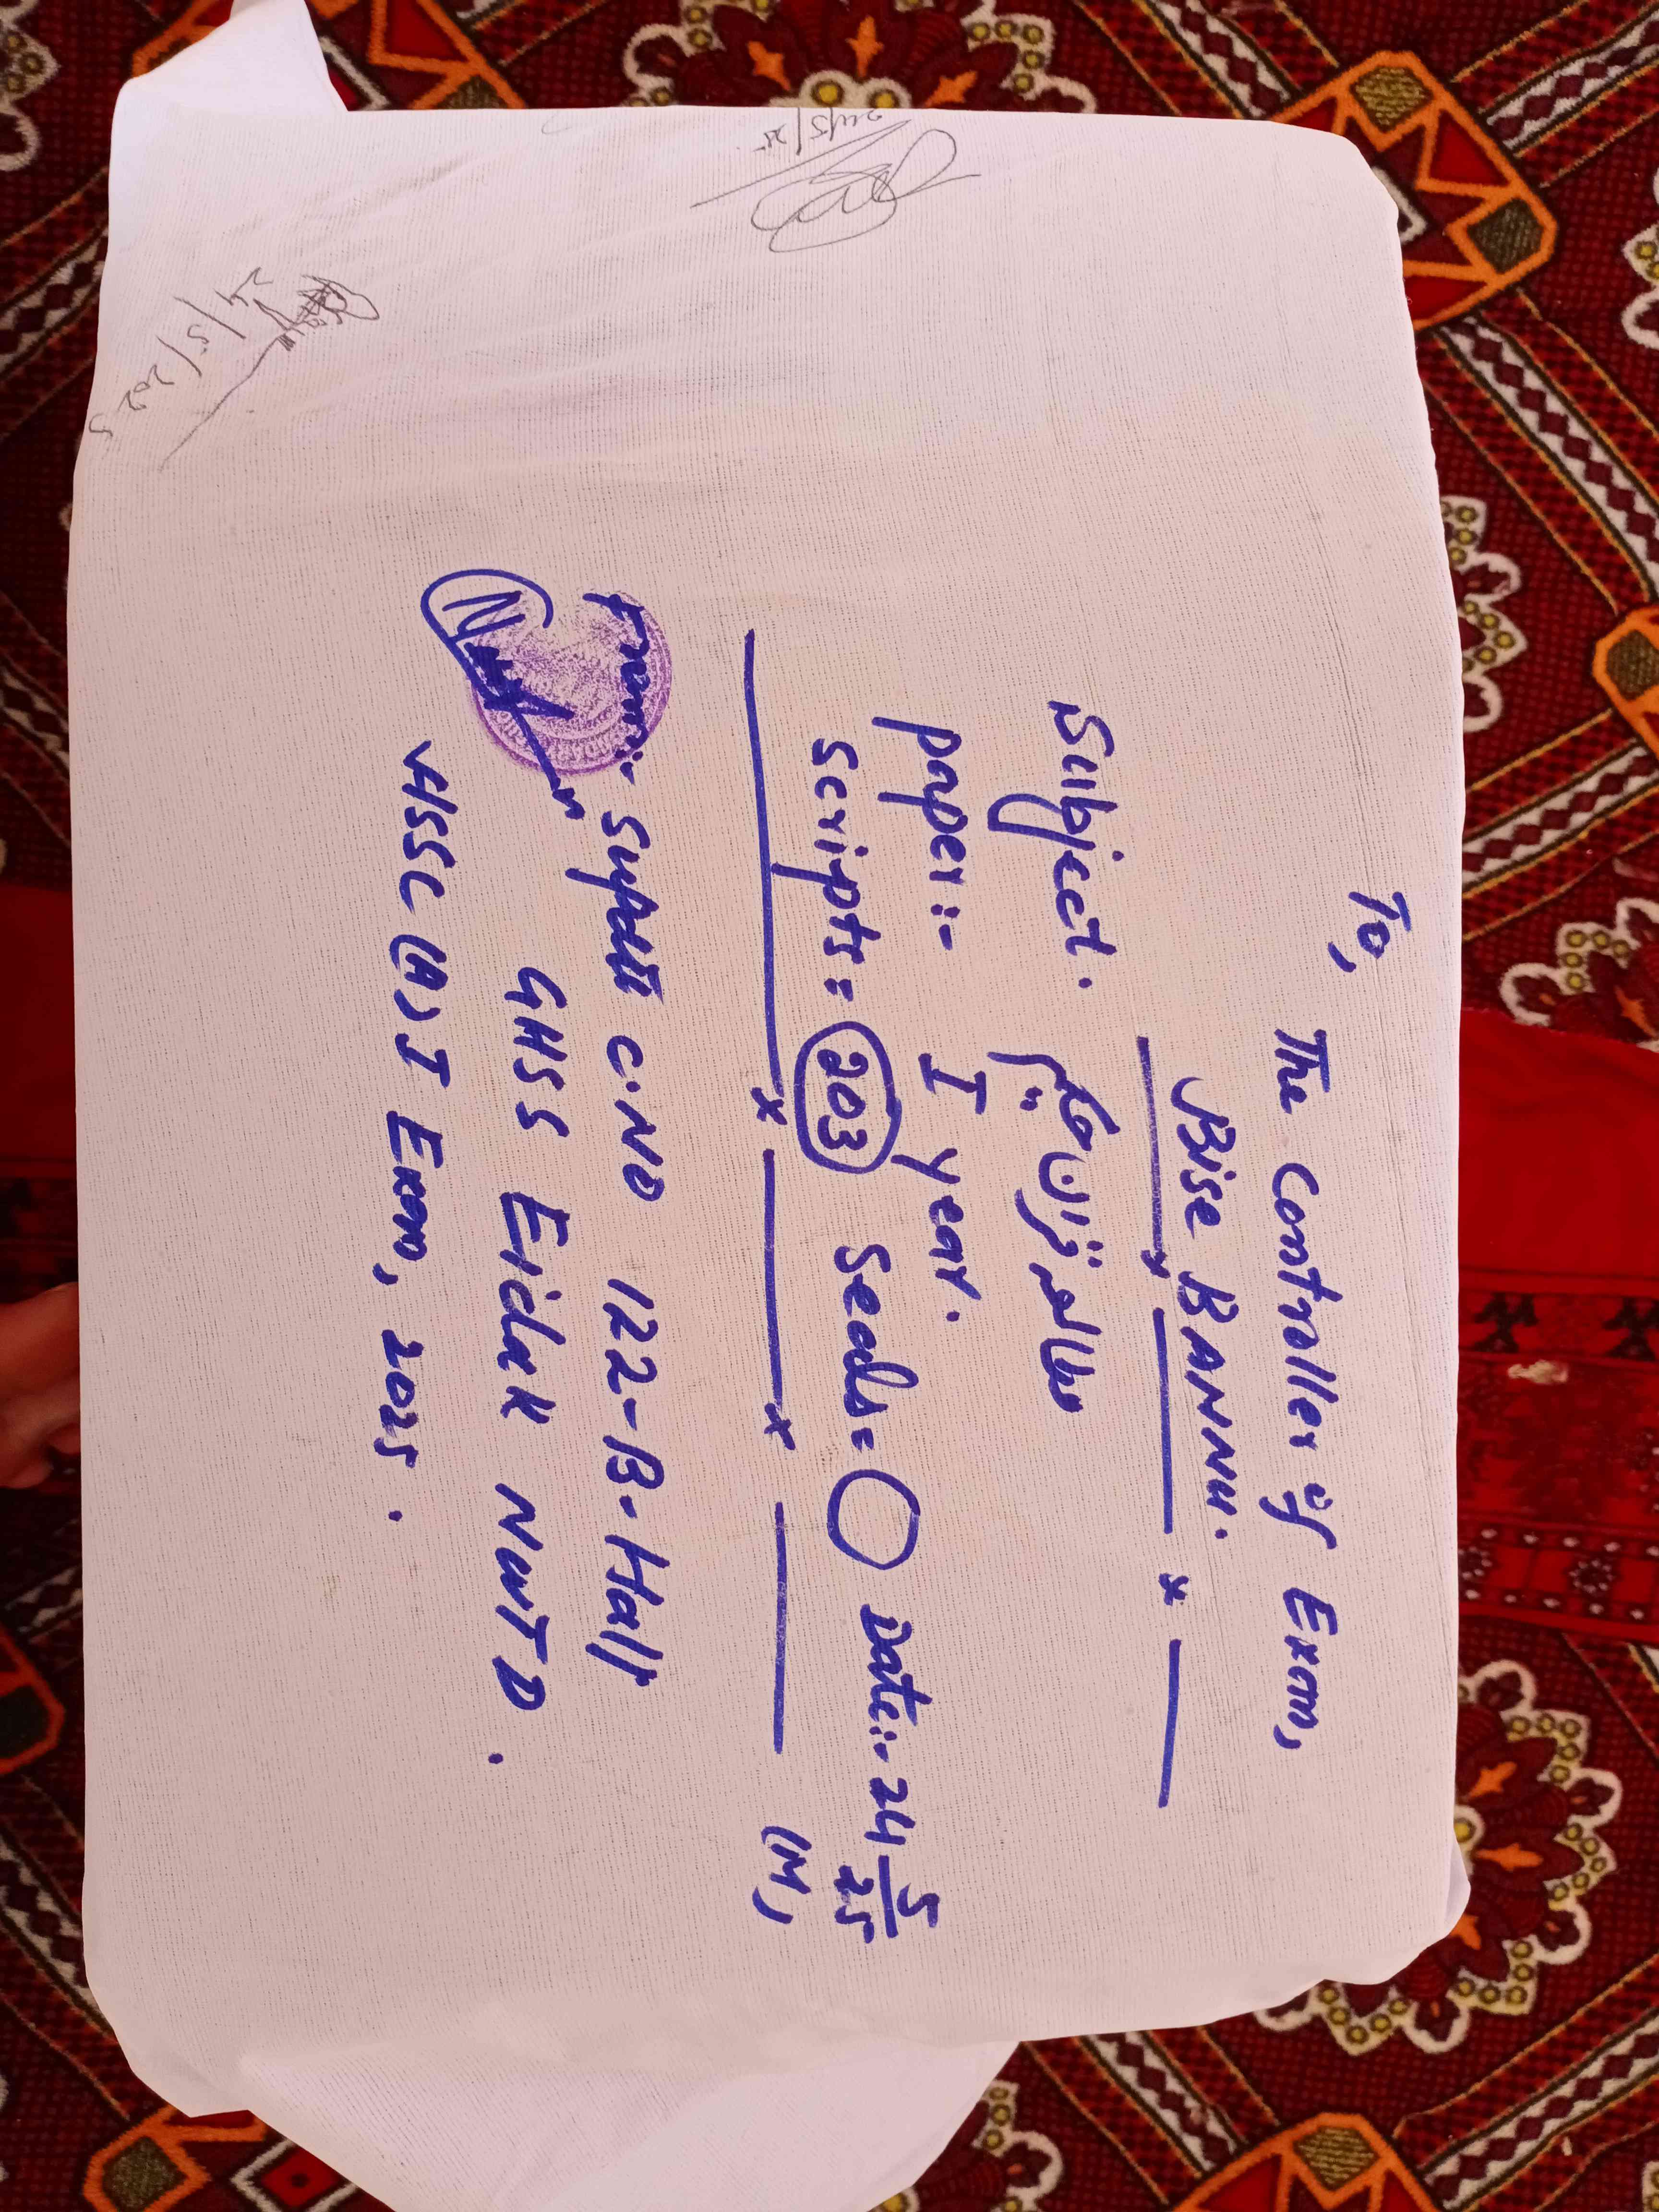 To,
The Controller of Exam,
Bise BANNU.
Subject. مطالعہ قرآن حکیم
paper:- I year.
Scripts = 203 Seals = Date:- 24 5/25
(M)
From:- Supdtt C.NO 122-B-Hall
GHSS Eidak NWTD.
HSSC (A) I Exam, 2025.
24/5/25
24/5/2025